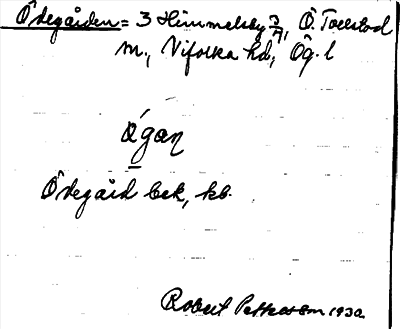 Ödegården = 3 Himmelsby 3/4, Ö. Tollstad
m., Vifolka hd, Ög. l
ögan
Ödegård bek, kb.
Robert Pettersson 1930